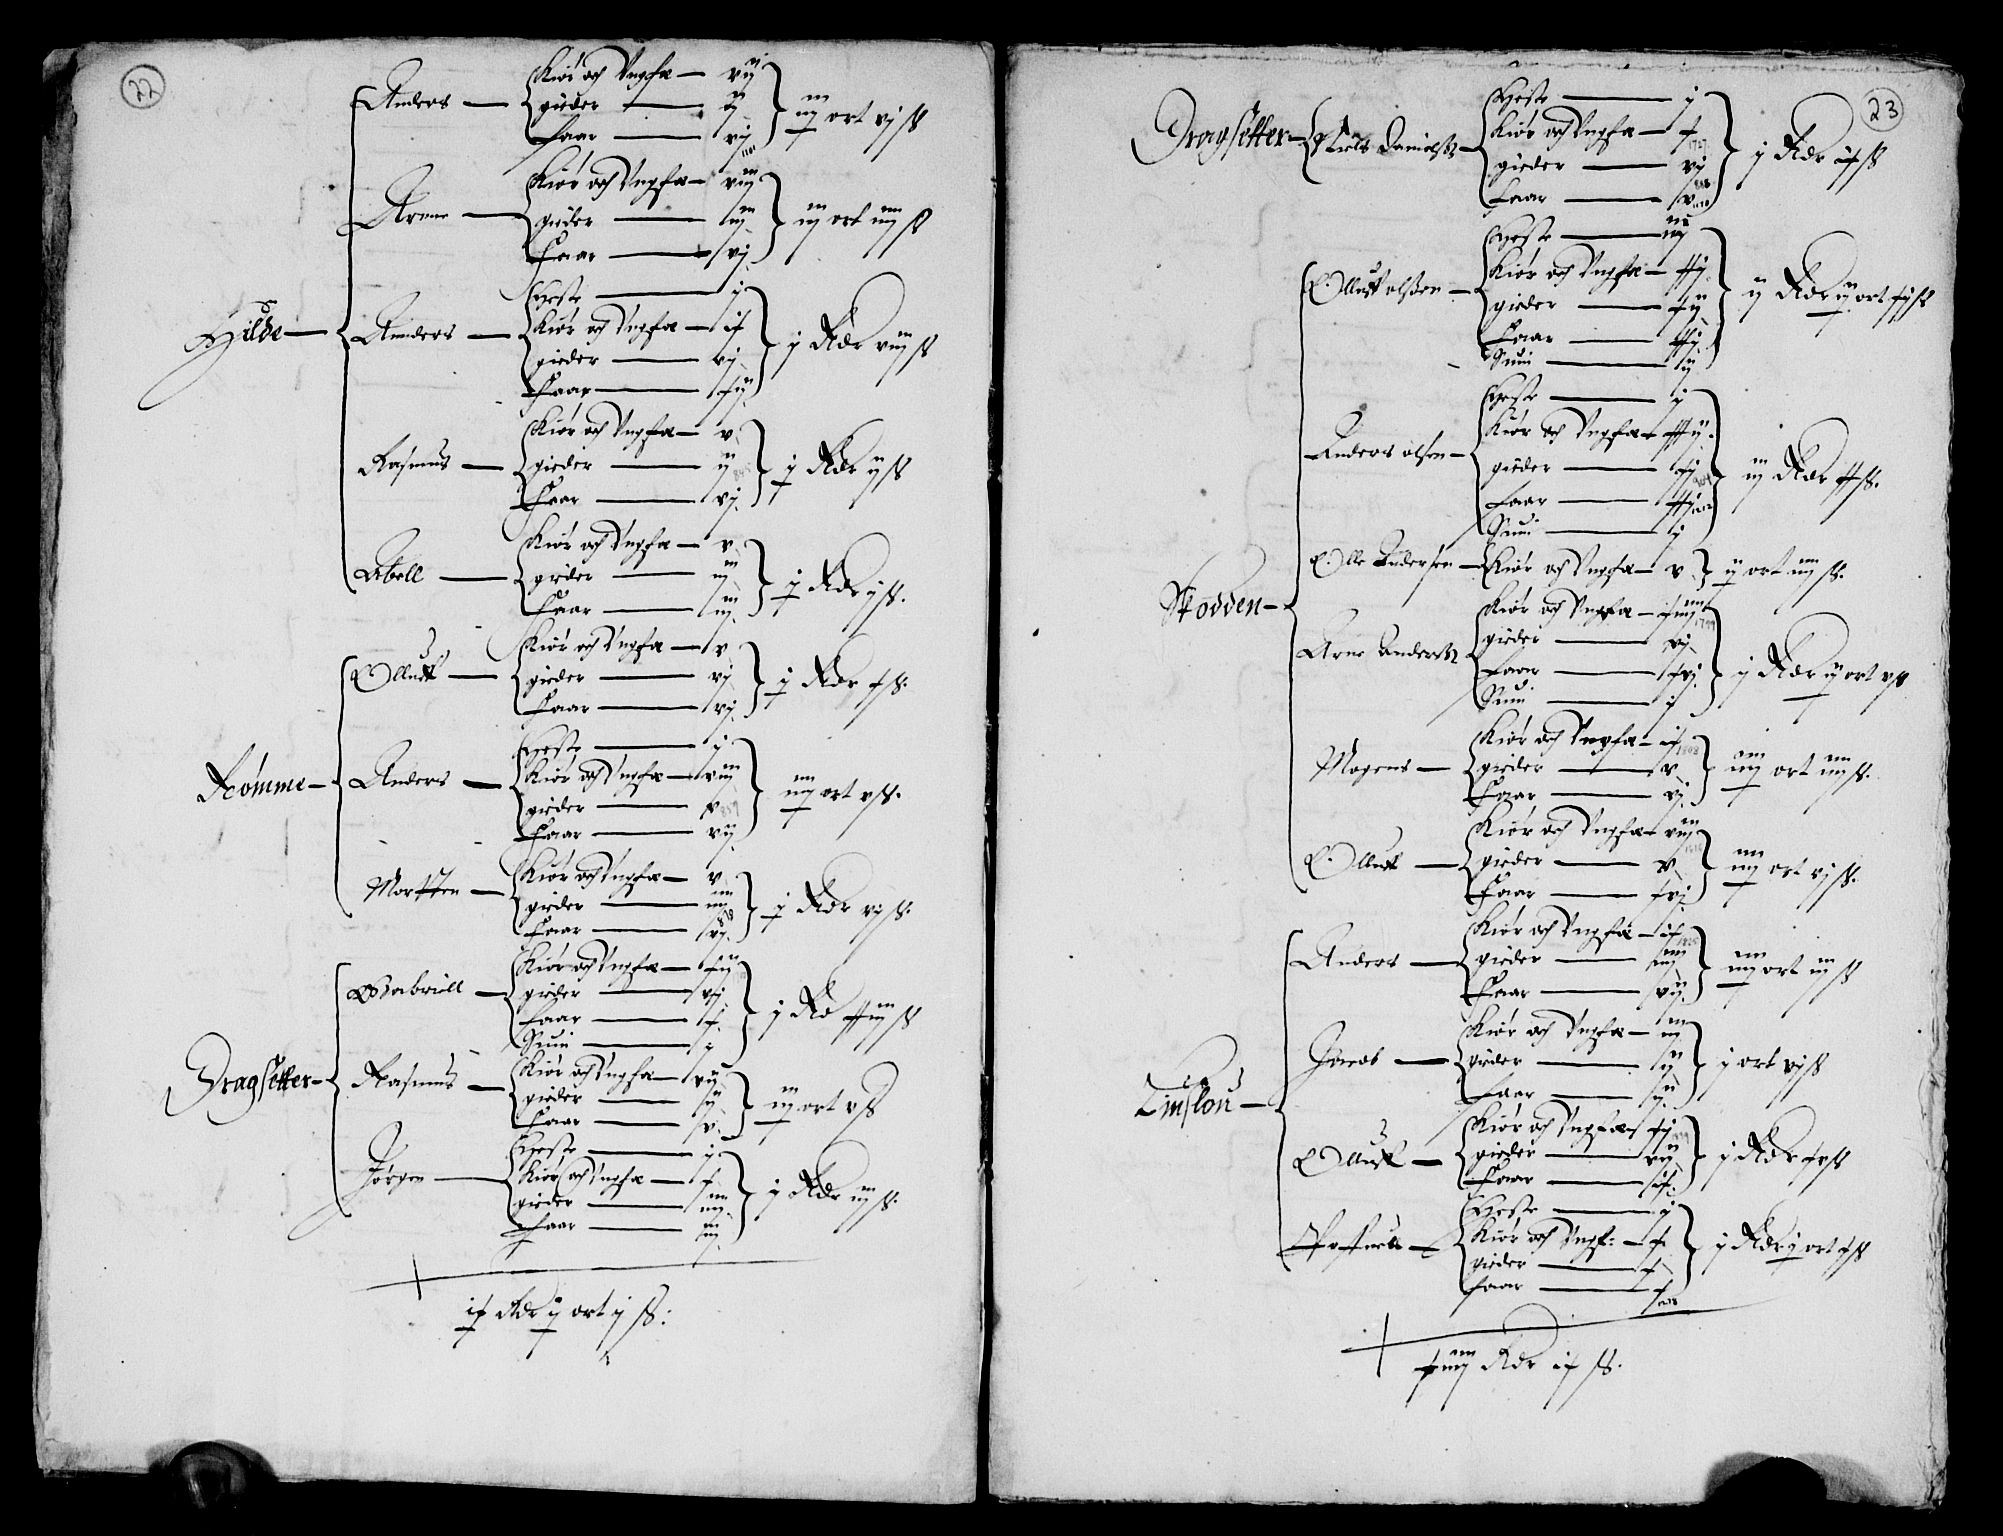 22
Anders — Kiør och Ungfæ — vij
gieder — ij
faar — vij
iij ort vj ß
Arnne — Kiør och Ungfæ — viij
gieder — iij
faar — vj
iij ort iiij ß
Hilde —
Anders — Heste — j
Kiør och Ungfæ — ix
gieder — vj
faar — xij
j Rdr viij ß
Rasmus — Kiør och Ungfæ — v
gieder — ij
faar — vj
j Rdr ij ß
Abell — Kiør och Ungfæ — v
gieder — iij
faar — iij
j Rdr j ß.
Rømme —
Olluff — Kiør och Ungfæ — v
gieder — vj
faar — vj
j Rdr x ß.
Anders — Heste — j
Kiør och Ungfæ — viij
gieder — v
faar — vij
iiij ort v ß.
Mortten — Kiør och Ungfæ — v
gieder — iiij
faar — vj
j Rdr vj ß.
Dragsetter —
Gabriell — Kiør och Ungfæ — xij
gieder — vj
faar — x
Suin — j
j Rd xxiij ß
Rasmus — Kiør och Ungfæ — vij
gieder — ij
faar — v
iij ort v ß
Jørgen — Heste — j
Kiør och Ungfæ — x
gieder — iiij
faar — iij
j Rdr iij ß.
ix Rdr ij ort j ß:
23
Dragsetter — Niels Danielß — Heste — j
Kiør och Ungfæ — x
gieder — vj
faar — v
j Rdr ix ß
Skodden —
Olluff olßen — Heste — iij
Kiør och Ungfæ — xxj
gieder — xij
faar — xxj
Suin — ij
ij Rdr ij ort xj ß
Anders olsen — Heste — j
Kiør och Ungfæ — xxxij
gieder — xj
faar — xxj
Suin — j
iij Rdr xx ß.
Olle Andersen — Kiør och Ungfæ — v
ij ort iiij ß.
Arne Anderß — Kiør och Ungfæ — xiiij
gieder — vj
faar — xvj
Suin — j
j Rdr ij ort v ß
Mogens — Kiør och Ungfæ — ix
gieder — v
faar — vj
iiij ort iiij ß.
Olluff — Kiør och Ungfæ — viij
gieder — v
faar — xvj
iiij ort vj ß.
Linflou —
Anders — Kiør och Ungfæ — ix
gieder — iiij
faar — vij
iiij ort iij ß
Jacob — Kiør och Ungfæ — iij
gieder — ij
faar — ij
j ort vj ß
Olluff — Kiør och Ungfæ — xj
gieder — vij
faar — ix
j Rdr xv ß
Heste — j
Kiør och Ungf: — x
gieder — x
faar — x
j Rdr j ort x ß
xiiij Rdr ix ß.